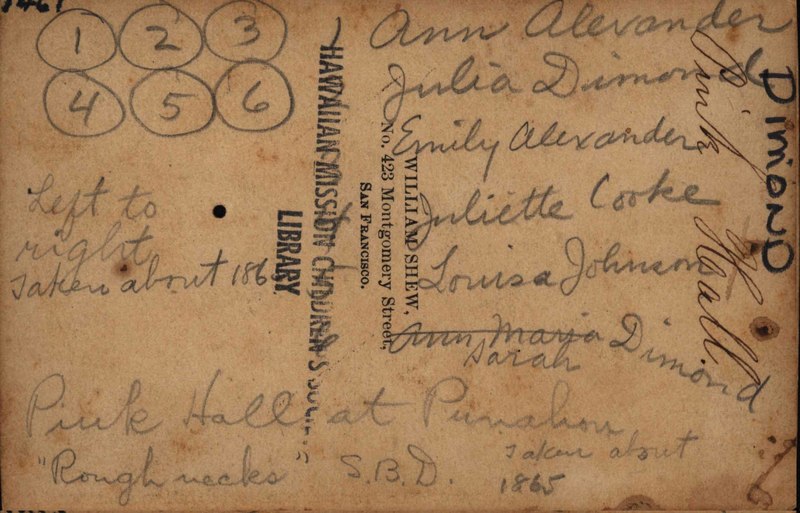 1 2 3
4 5 6
Ann Alexander
Julia Dimond
Emily Alexander
Juliette Cooke
Louisa Johnson
Ann Maria Dimond
Sarah
Left to
right
Taken about 186
HAWAIIAN MISSION CHILDREN'S SOCIETY
LIBRARY.
WILLIAM SHEW,
No. 423 Montgomery Street,
SAN FRANCISCO.
Pink Hall
DIMOND
Pink Hall at Punahou
"Rough necks" S.B.D.
Taken about
1865